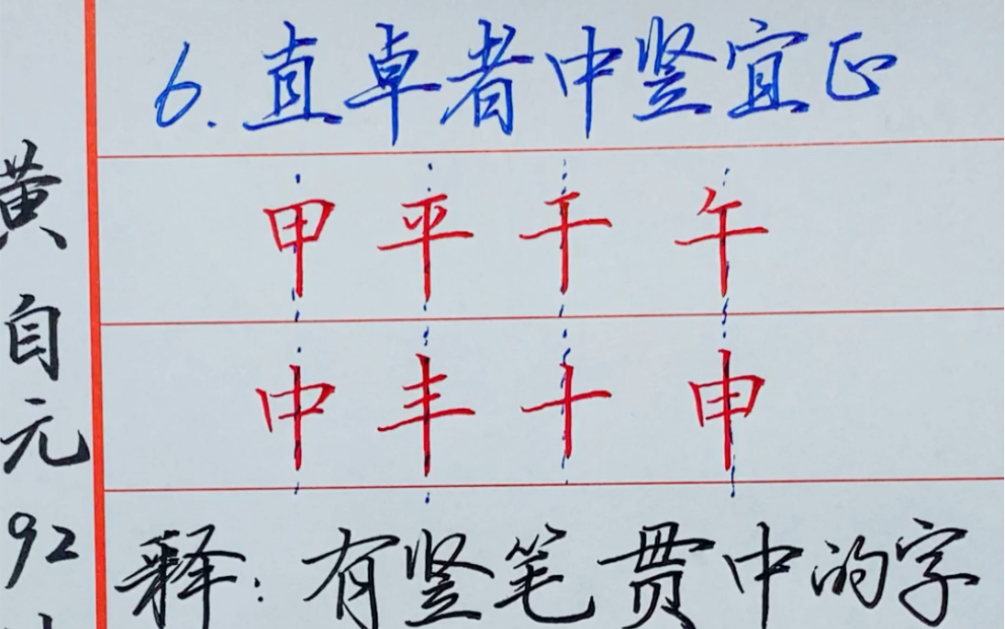 6.直卓者中竖宜正
甲平干午
中丰十申
释:有竖笔贯中的字
黄自元92